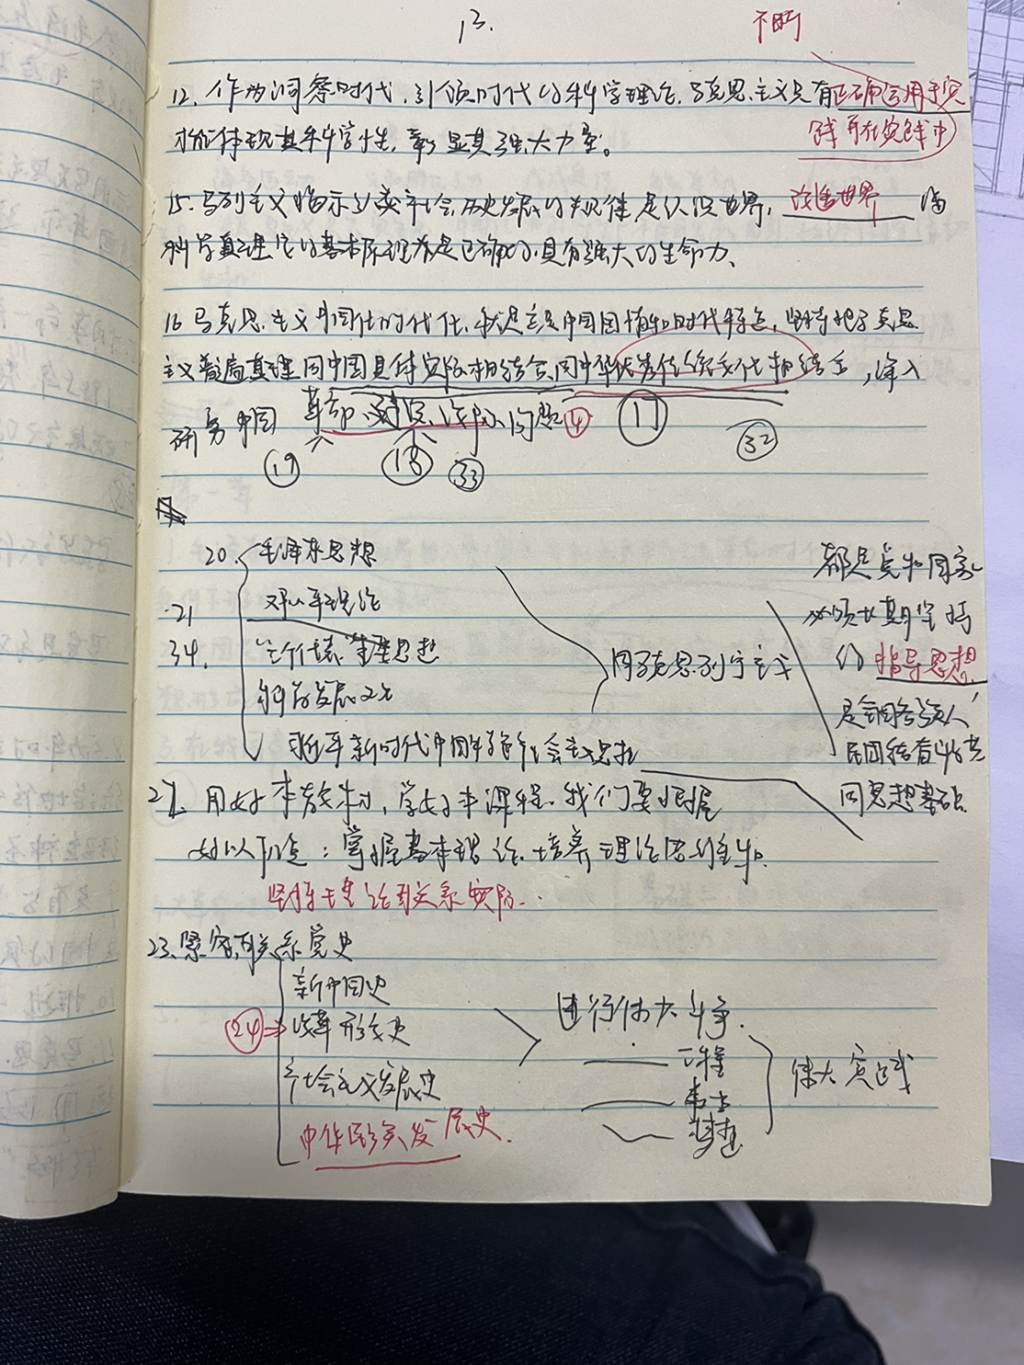 13.
不断
12. 作为洞察时代、引领时代的科学理论,马克思主义只有正确运用于实
践并在实践中
才能体现其科学性,彰显其强大力量。
15. 马列主义揭示了人类社会历史发展的规律是认识世界, 改造世界 的
科学真理它的基本原理是正确的,具有强大的生命力、
16 马克思主义中国化时代化,就是立足中国国情和时代特点,坚持把马克思
主义普遍真理同中国具体实际相结合、同中华优秀传统文化相结合,深入
研究中国 革命、建设、 问题 ④ 17 32
19 18 33
20. 毛泽东思想
21 邓小平理论
34. 三个代表重要思想
科学发展观
习近平新时代中国特色社会主义思想
同马克思列宁主义
都是党和国家
必须长期坚持
的 指导思想,
是全国各族人
民团结奋斗的共
同思想基础.
22. 用好本教材,学好本课程,我们要把握
好以下几点:掌握基本理论、培养理论思维和.
坚持理论联系实际..
23. 紧密联系党史
新中国史
24 改革开放史
社会主义发展史
中华民族发展史.
进行伟大斗争.
工程
事业
梦想
伟大实践